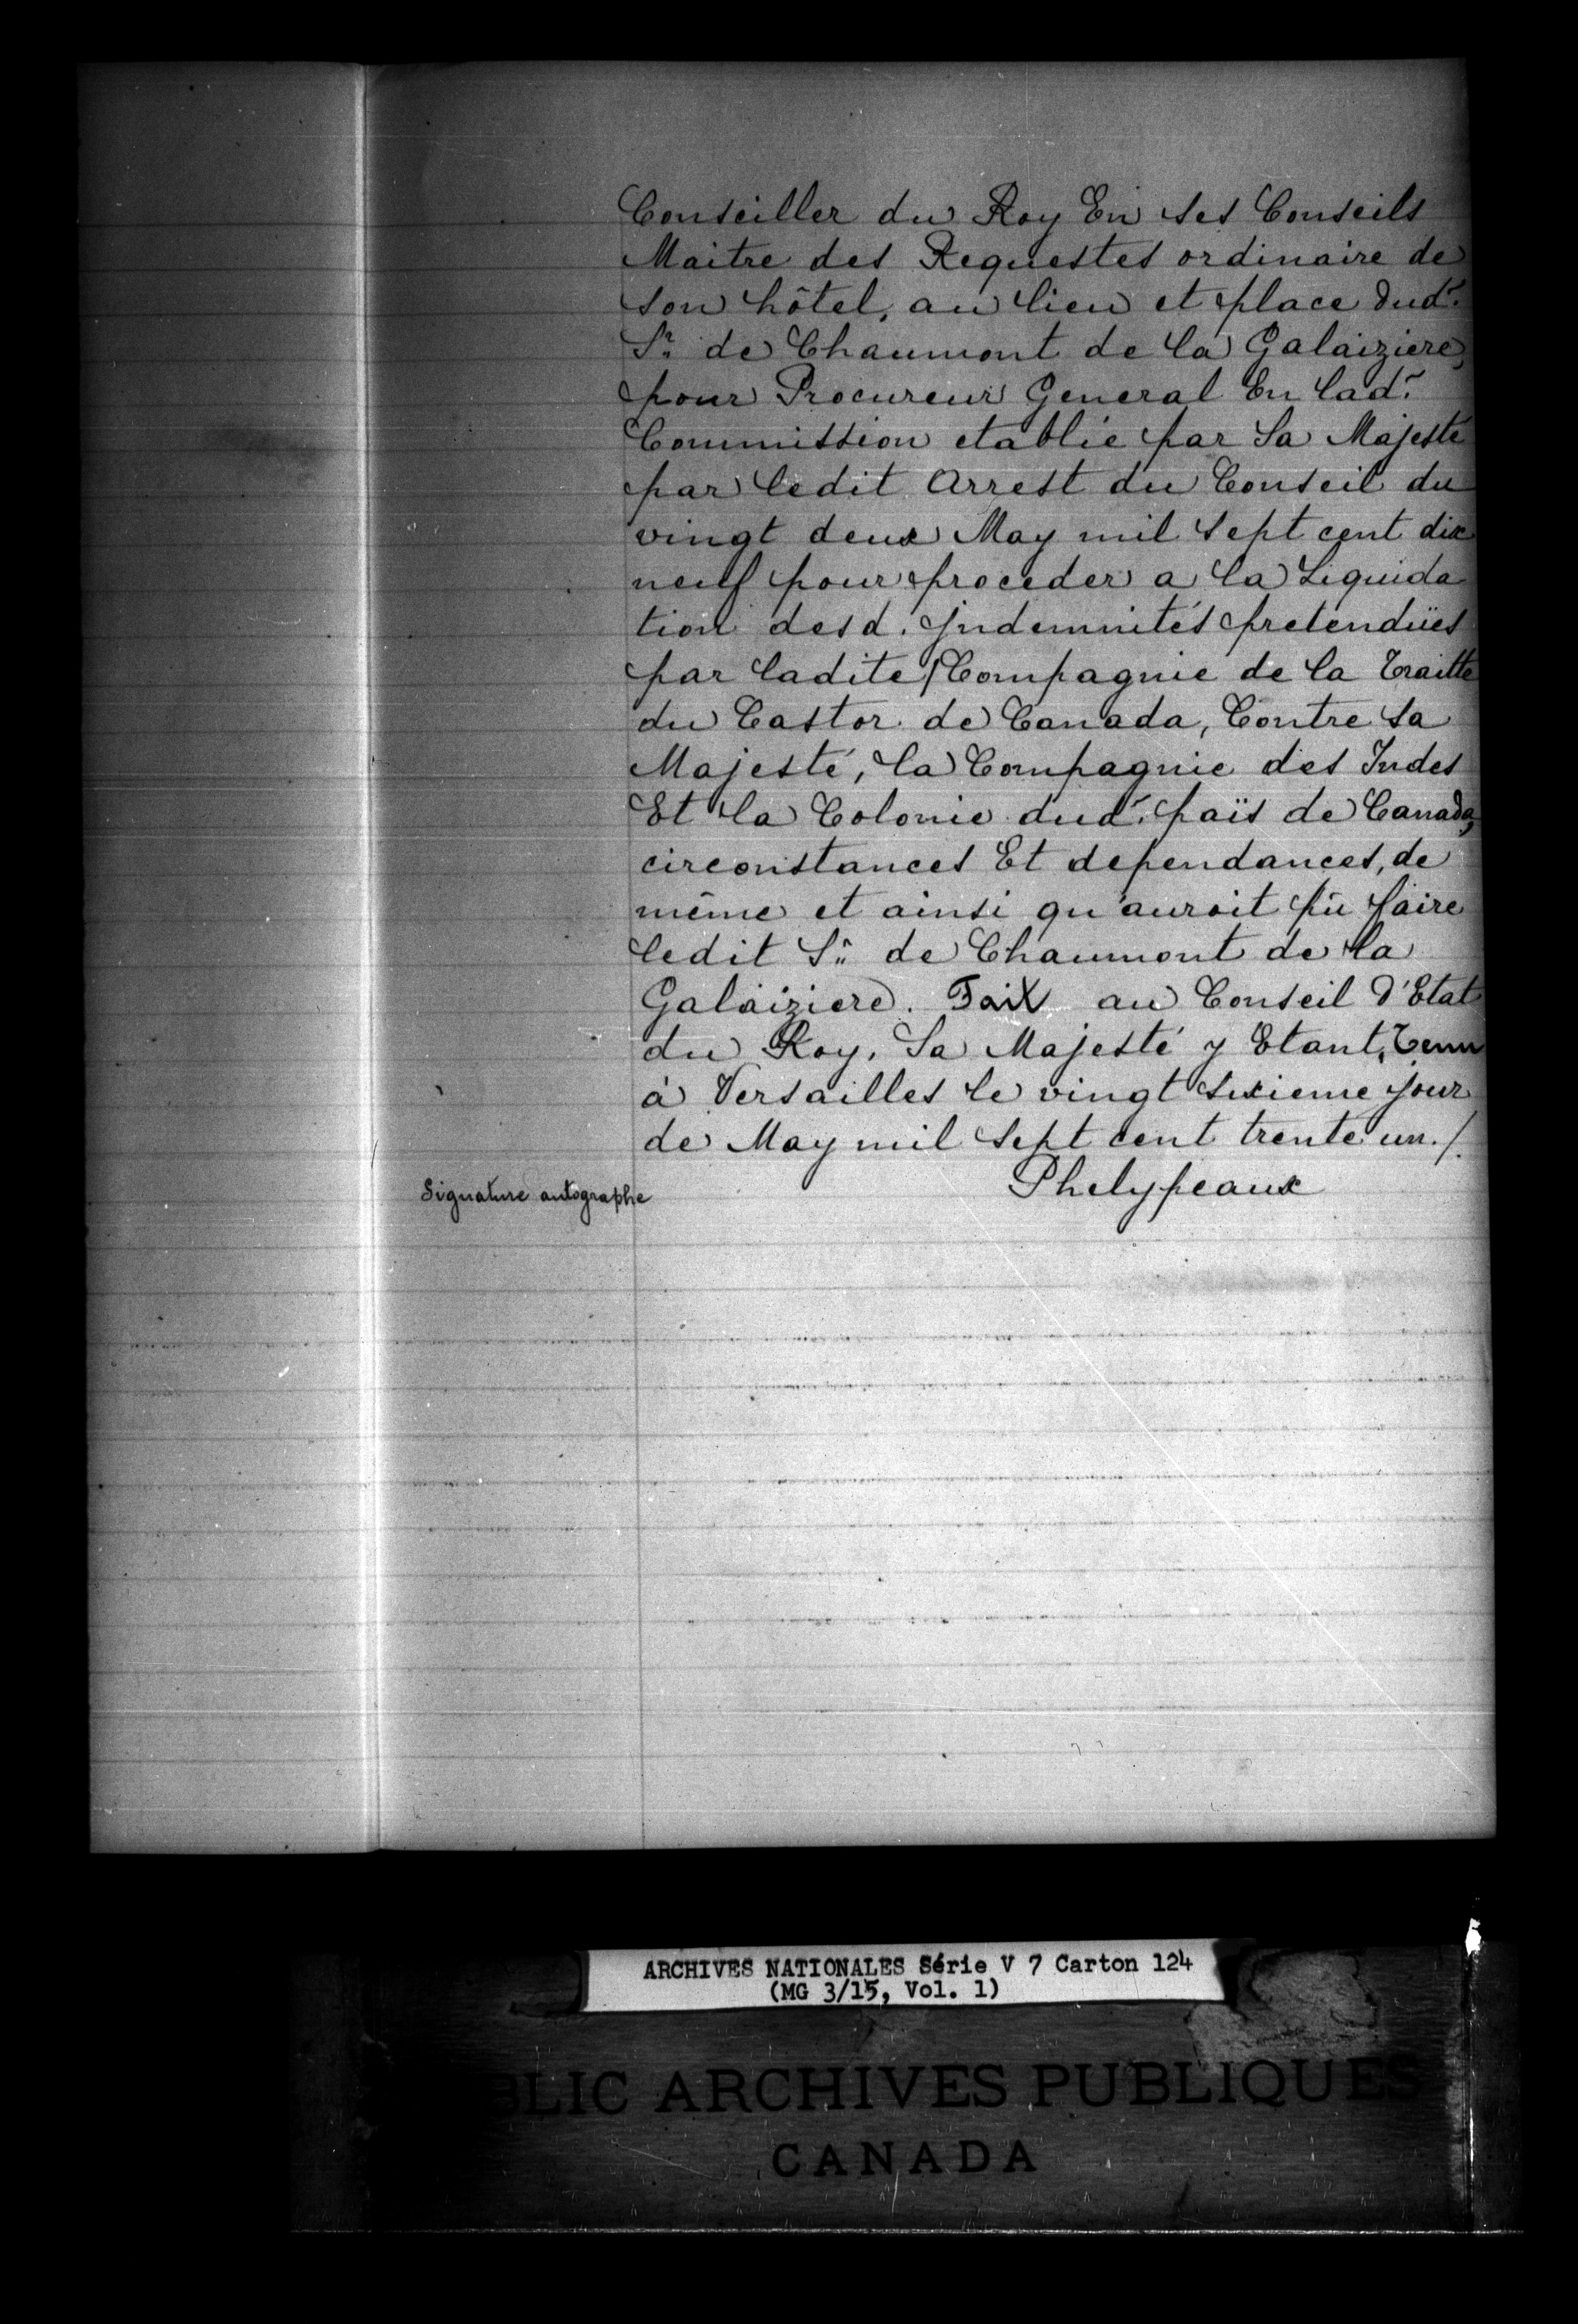 Conseiller du Roy En ses Conseils
Maitre des Requestes ordinaire de
son hôtel, au lieu et place dud.
Sr. de Chaumont de la Galaiziere,
pour Procureur General En lad.
Commission etablie par Sa Majesté
par ledit Arrest du Conseil du
vingt deux May mil sept cent dix
neuf pour proceder a la Liquida
tion desd. Jndemnités pretendües
par ladite Compagnie de la Traitte
du Castor de Canada, Contre Sa
Majesté, la Compagnie des Indes
Et la Colonie dud. païs de Canada,
circonstances Et dependances, de
même et ainsi qu'auroit pû faire
ledit Sr. de Chaumont de la
Galaiziere. Fait au Conseil d'Etat
du Roy, Sa Majesté y Etant, Tenu
à Versailles le vingt sixieme jour
de May mil sept cent trente un./.
Signature autographe Phelypeaux
ARCHIVES NATIONALES Série V 7 Carton 124
(MG 3/15, Vol. 1)
BLIC ARCHIVES PUBLIQUES
CANADA